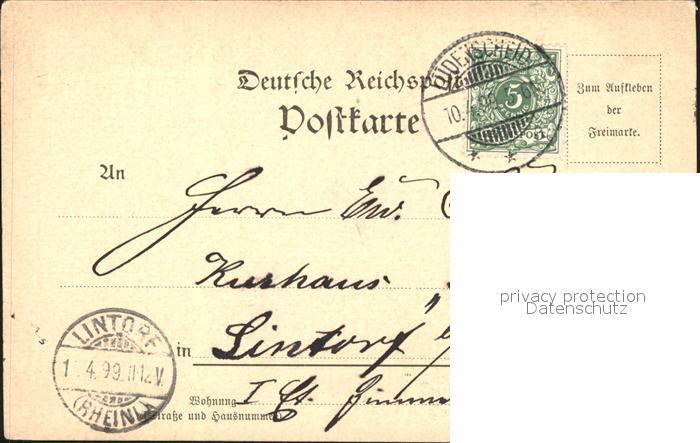 Deutsche Reichspost
Postkarte
LÜDENSCHEID
10.
5
POST
Zum Aufkleben
der
Freimarke.
An
Herrn Ew.
Kurhaus
"
in Lintorf
Wohnung I Et. Zimmer
(Straße und Hausnummer)
LINTORF
1 .4.99.11-12.V.
(RHEINL)
privacy protection
Datenschutz